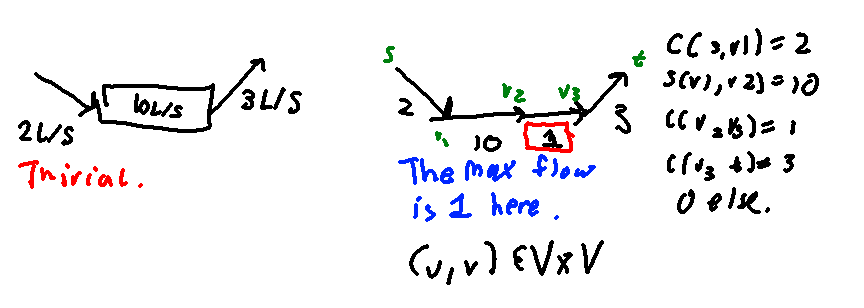 2L/S
10L/S
3L/S
Trivial.
s
2
v1
10
v2
1
v3
3
t
The max flow
is 1 here.
(u, v) ∈ V x V
C(s, v1) = 2
S(v1, v2) = 10
C(v2 v3) = 1
C(v3 t) = 3
0 else.